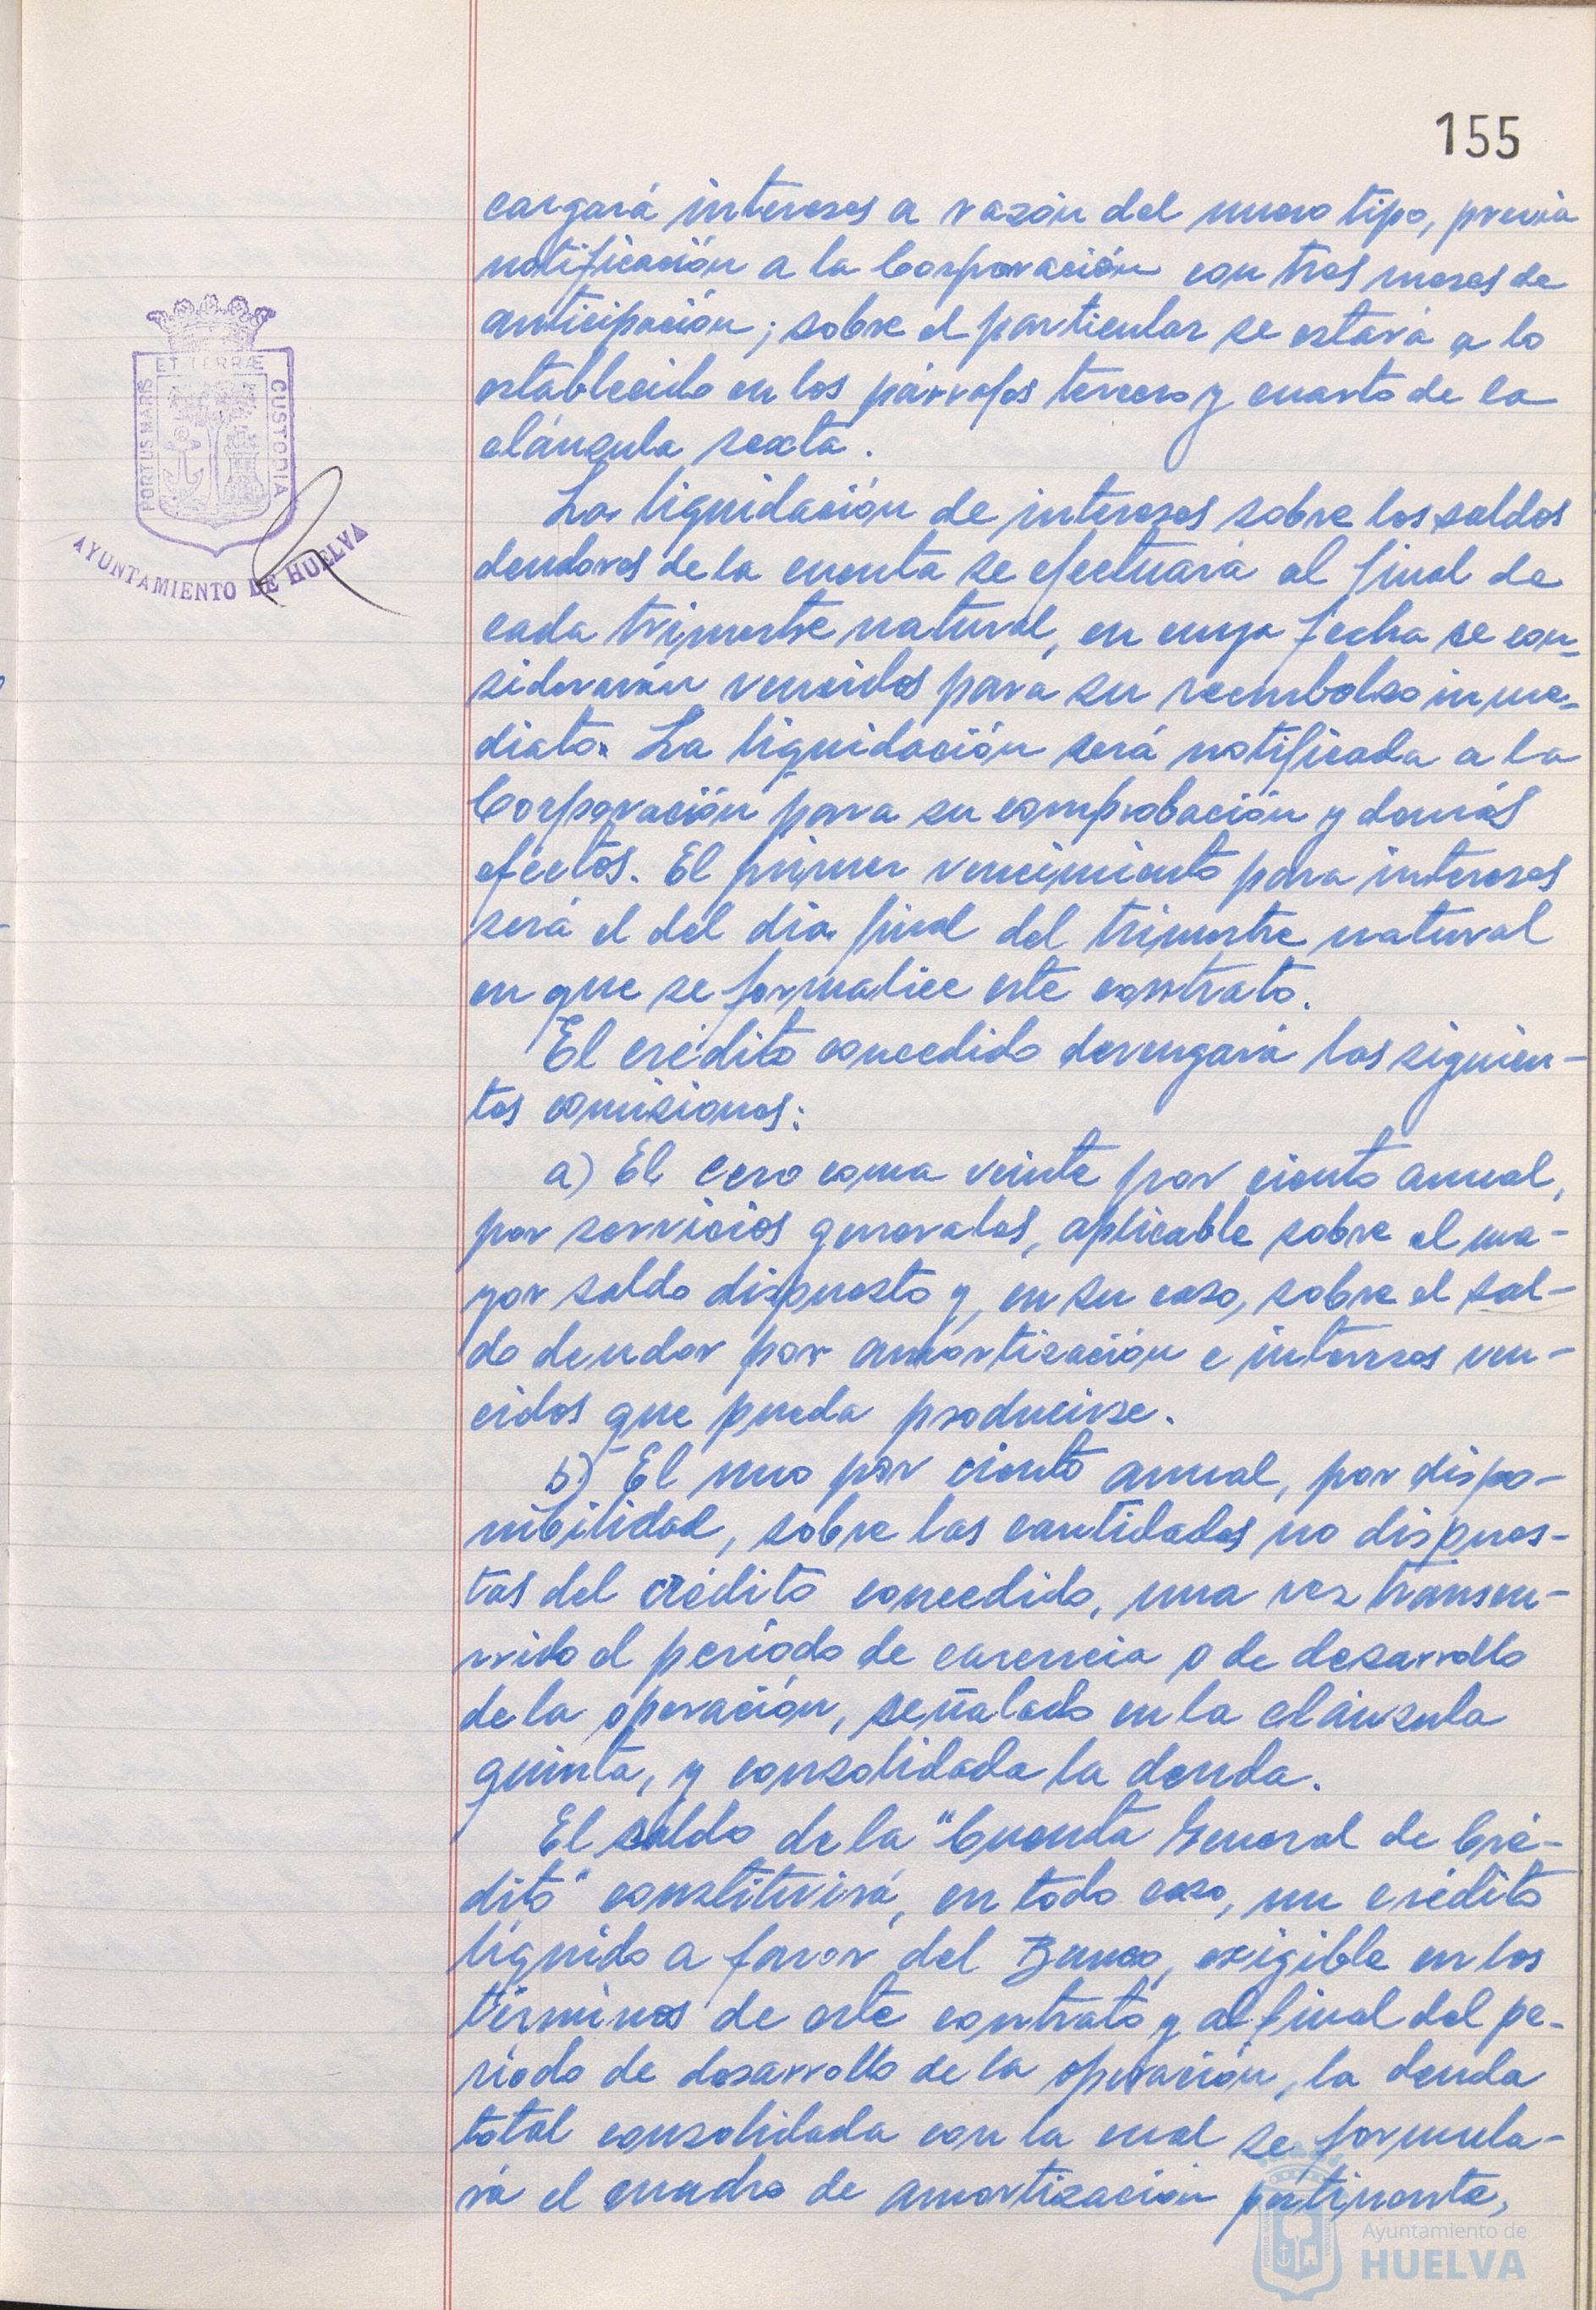 155
cargará intereses a razón del nuevo tipo, previa
notificación a la Corporación con tres meses de
anticipación; sobre el particular se estará a lo
establecido en los párrafos tercero y cuarto de la
cláusula sexta.
La liquidación de intereses sobre los saldos
deudores de la cuenta se efectuará al final de
cada trimestre natural, en cuya fecha se con-
siderarán vencidos para su reembolso inme-
diato. La liquidación será notificada a la
Corporación para su comprobación y demás
efectos. El primer vencimiento para intereses
será el del día final del trimestre natural
en que se formalice este contrato.
El crédito concedido devengará las siguien-
tes comisiones:
a) El cero coma veinte por ciento anual,
por servicios generales, aplicable sobre el ma-
yor saldo dispuesto y, en su caso, sobre el sal-
do deudor por amortización e intereses ven-
cidos que pueda producirse.
b) El uno por ciento anual, por dispo-
nibilidad, sobre las cantidades no dispues-
tas del crédito concedido, una vez transcu-
rrido el período de carencia o de desarrollo
de la operación, señalado en la cláusula
quinta, y consolidada la deuda.
El saldo de la "Cuenta General de Cré-
dito" constituirá, en todo caso, un crédito
líquido a favor del Banco, exigible en los
términos de este contrato y al final del pe-
ríodo de desarrollo de la operación, la deuda
total consolidada con la cual se formula-
rá el cuadro de amortización pertinente,
PORTUS MARIS
ET TERRÆ
CUSTODIA
AYUNTAMIENTO DE HUELVA
Ayuntamiento de
HUELVA